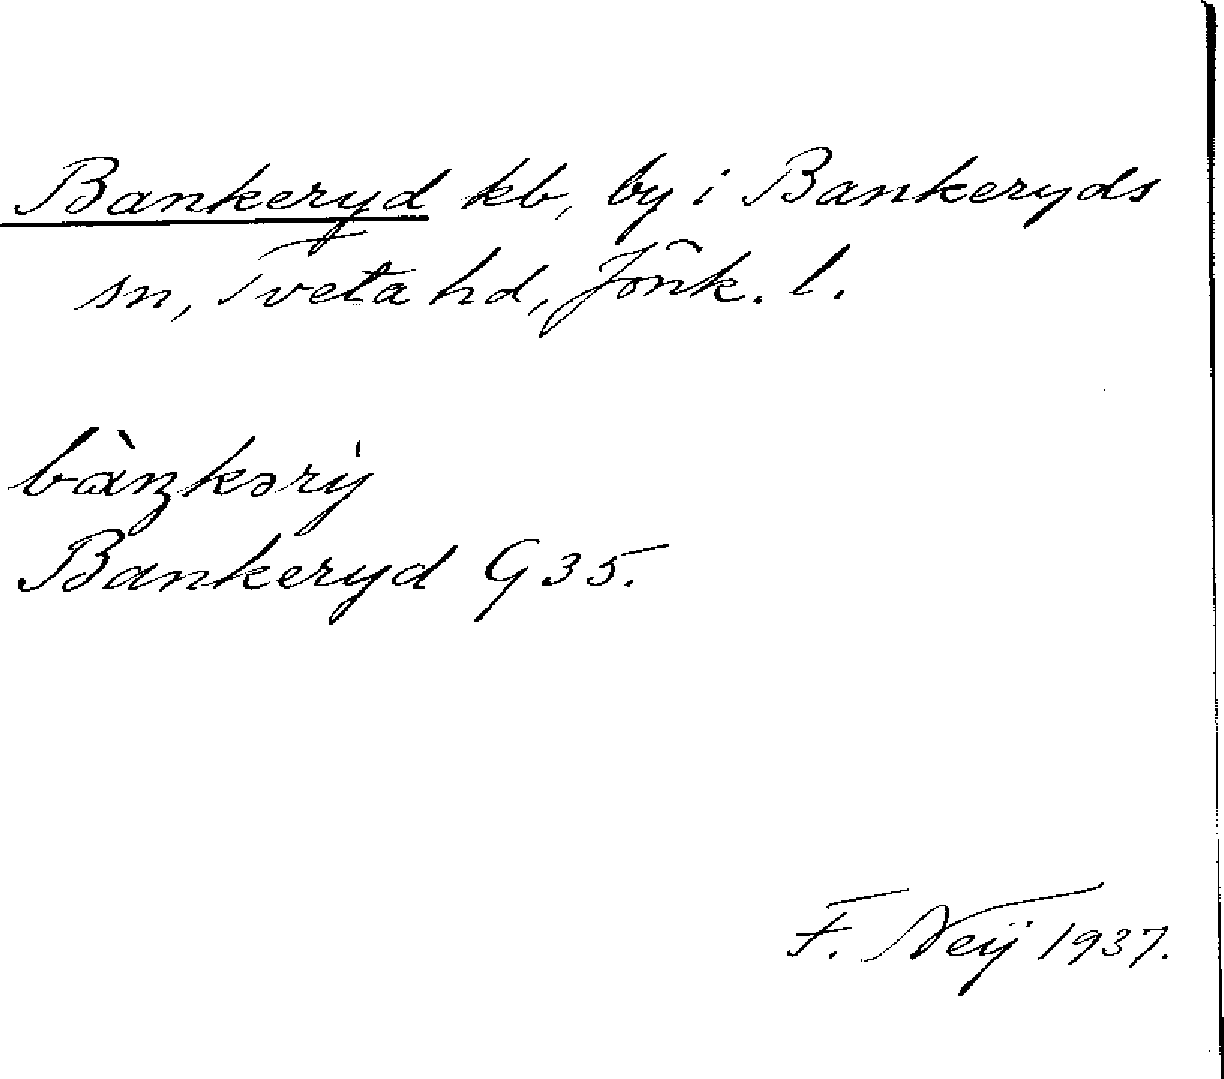 Bankeryd kb, by i Bankeryds
sn, Tveta hd, Jönk. l.
bàŋkəry̍
Bankeryd G35.
F. Neij 1937.